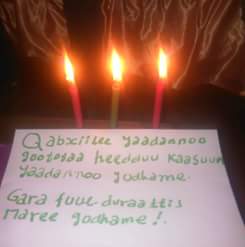 Qabxiilee yaadannoo
goototaa heedduu kaasuun
yaadannoo godhame.
Gara fuul duraattis
Maree godhame!.